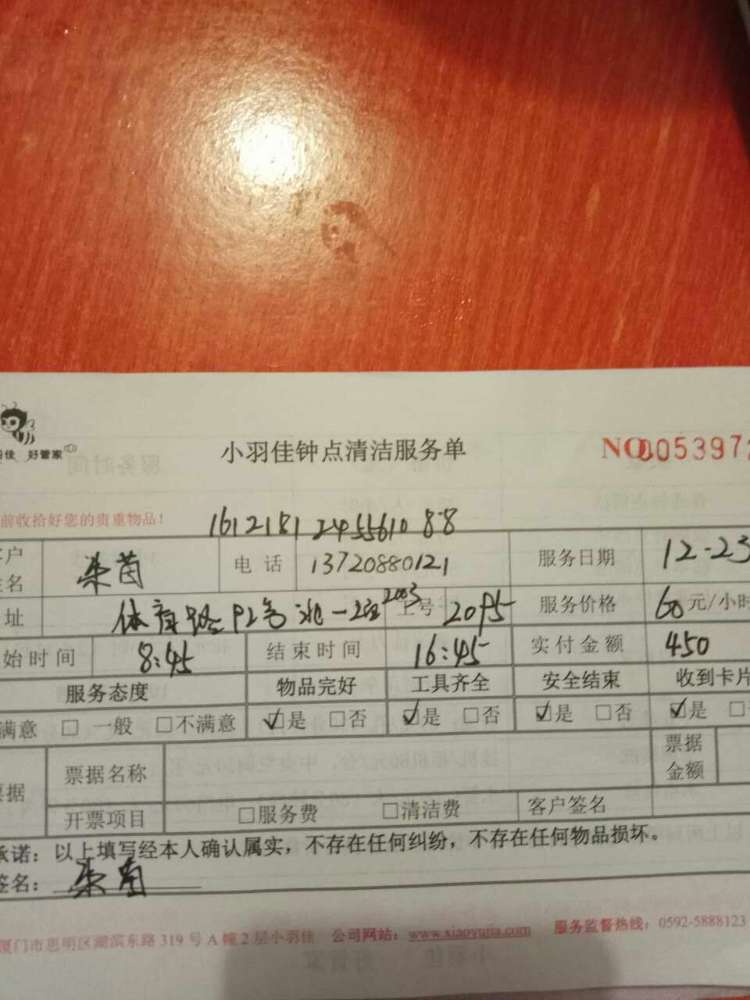 佳 好管家
小羽佳钟点清洁服务单
NO.005397
前收拾好您的贵重物品!
1612181 2455610 88
户 名 朱茵 电话 13720880121 服务日期 12-23
址 体育路92号 一 2003 工号 2095 服务价格 60元/小时
始时间 8:45 结束时间 16:45 实付金额 450
服务态度 物品完好 工具齐全 安全结束 收到卡片
满意 □ 一般 □不满意 ☑是 □否 ☑是 □否 ☑是 □否 ☑是
据 票据名称 票据金额
开票项目 □服务费 □清洁费 客户签名
承诺:以上填写经本人确认属实,不存在任何纠纷,不存在任何物品损坏。
签名:朱茵
厦门市思明区湖滨东路319号A幢2层小羽佳 公司网站:www.xiaoyujia.com 服务监督热线:0592-5888123